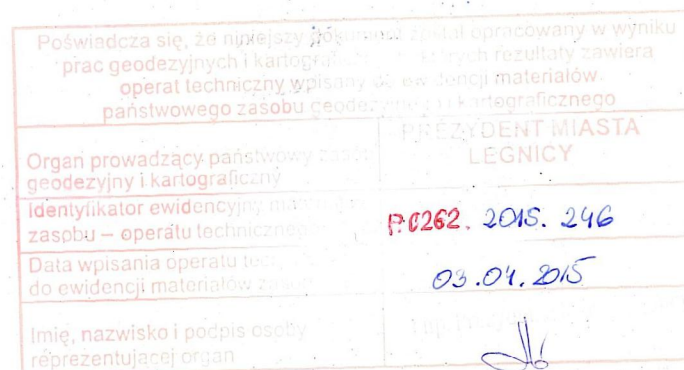 Poświadcza się, że niniejszy dokument został opracowany w wyniku
prac geodezyjnych i kartograficznych, których rezultaty zawiera
operat techniczny wpisany do ewidencji materiałów
państwowego zasobu geodezyjnego i kartograficznego
Organ prowadzący państwowy zasób
geodezyjny i kartograficzny
PREZYDENT MIASTA
LEGNICY
Identyfikator ewidencyjny
zasobu – operatu technicznego
P.0262. 2015. 246
Data wpisania operatu
do ewidencji materiałów
03.04.2015
Imię, nazwisko i podpis osoby
reprezentującej organ